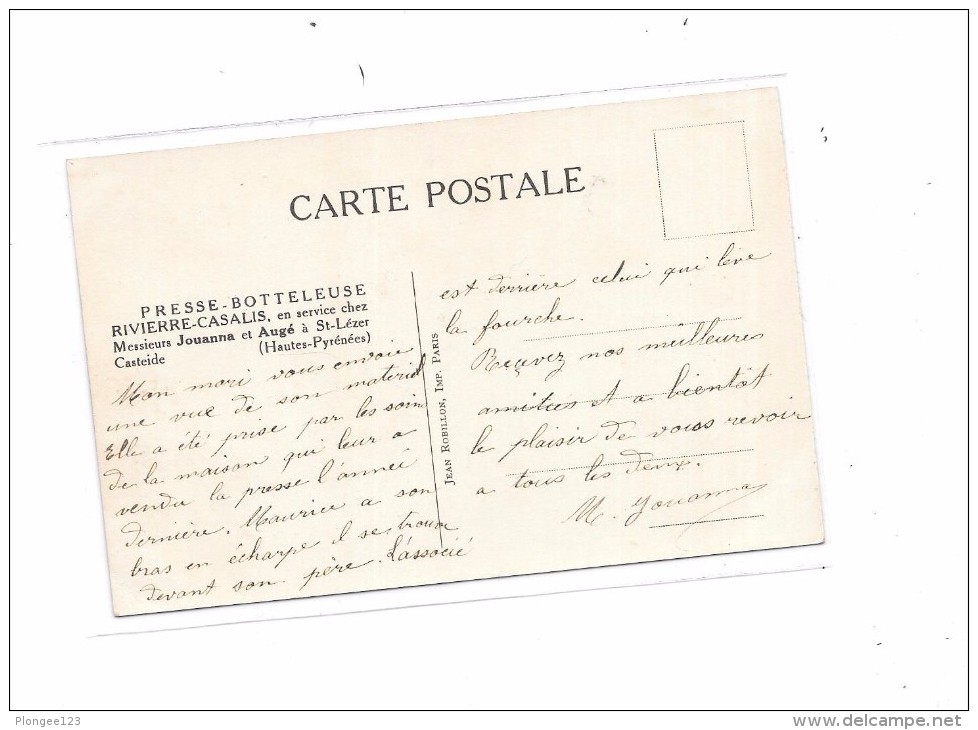 CARTE POSTALE
PRESSE-BOTTELEUSE
RIVIERRE-CASALIS, en service chez
Messieurs Jouanna et Augé à St-Lézer
Casteide (Hautes-Pyrénées)
Mon mari vous envoie
une vue de son matériel
Elle a été prise par les soin
de la maison qui leur a
vendu la presse l'anneé
dernière. Maurice a son
bras en écharpe il se trouve
devant son père. L'associé
JEAN ROBILLON, IMP. PARIS
est derrière celui qui lève
la fourche.
Reçevez nos meilleures
amitiés et a bientôt
le plaisir de vous revoir
a tous les deux.
M. Jouanna
Plongee123
www.delcampe.net